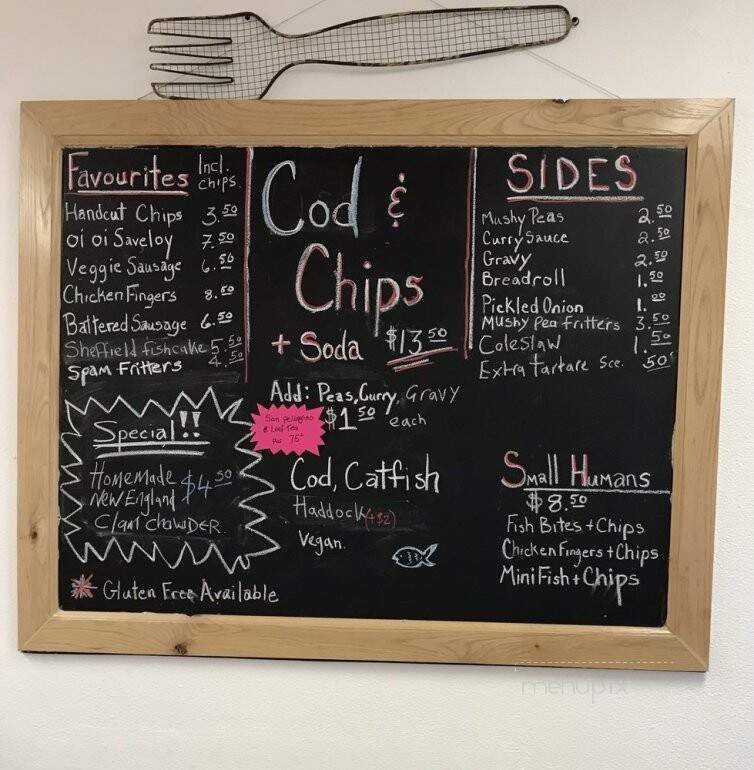 Favourites Incl. chips.
Handcut Chips 3.50
oi oi Saveloy 7.50
Veggie Sausage 6.50
Chicken Fingers 8.50
Battered Sausage 6.50
Sheffield fishcake 5.50
Spam Fritters 4.50
Special!!
Homemade
New England $4.50
Clam Chowder
Gluten Free Available
Cod &
Chips
+ Soda $13.50
Add: Peas, Curry, Gravy
$1.50 each
San pelegrino
& Leaf Tea
75¢
Cod, Catfish
Haddock (+$2)
Vegan.
SIDES
Mushy Peas 2.50
Curry Sauce 2.50
Gravy 2.50
Breadroll 1.50
Pickled Onion 1.00
Mushy Pea Fritters 3.50
Coleslaw 1.50
Extra tartare Sce. .50
Small Humans
$8.50
Fish Bites + Chips
Chicken Fingers + Chips
Mini Fish + Chips
menupix